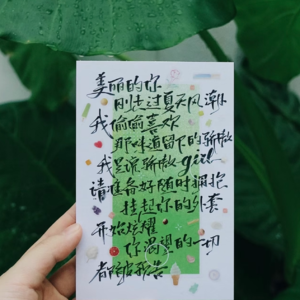 美丽的你
刚去过夏天风潮
我偷偷喜欢
那味道留下的骄傲
我是说骄傲 girl
请准备好随时拥抱
挂起你的外套
开始炫耀
你渴望的一切
都能报告